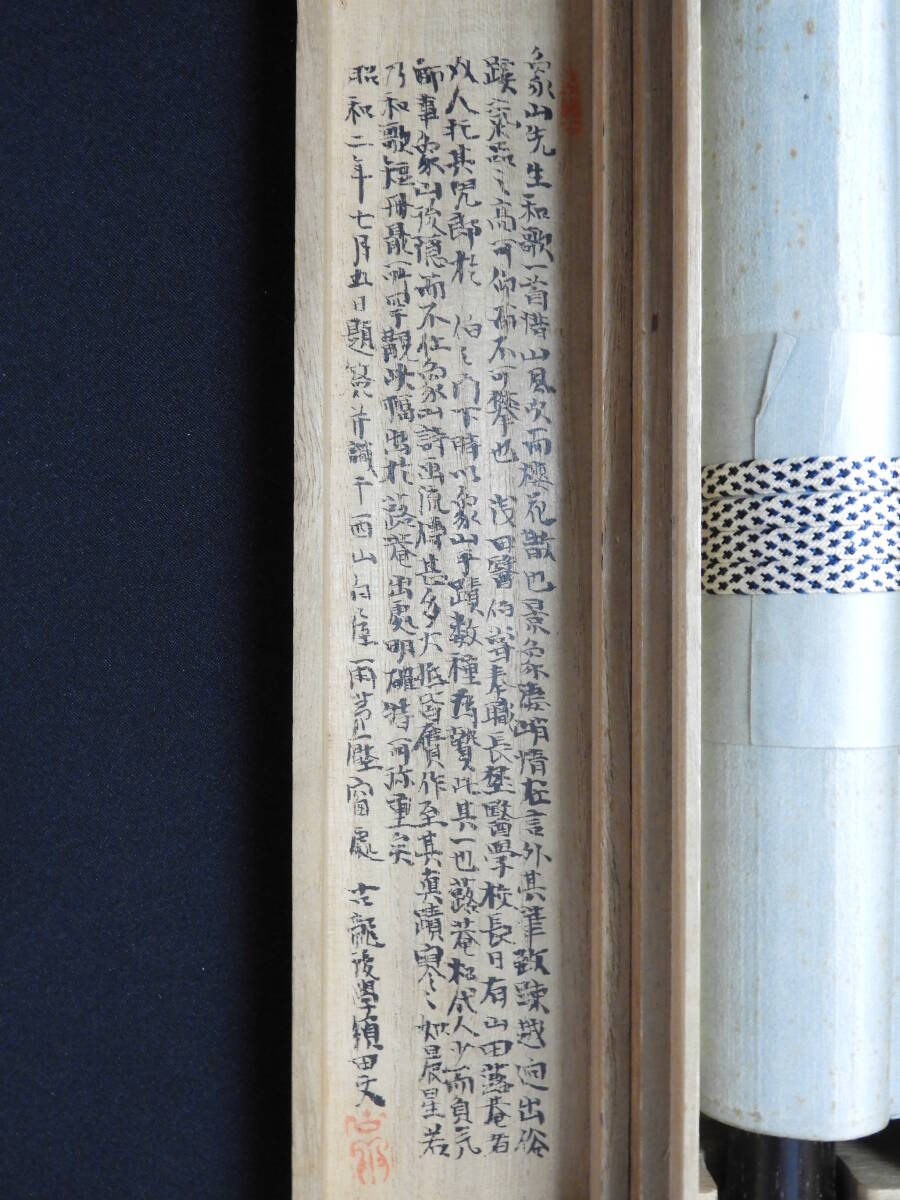 象山先生和歌一首惜山風吹而櫻花散也景象凄 情在言外其筆致疎越迥出俗
蹊 高可仰而不可攀也 浅田醫伯 奉職長埜醫學校長日有山田蕗菴者
 人托其児郎於 伯之門下時以象山手蹟数種為贄此其一也蕗菴松代人少而負 
師事象山後隠而不仕象山詩画流傳甚多大抵皆贋作至其真蹟寥々如晨星若
乃和歌短冊最所罕観此幅出於蕗菴出處明確特可珍重矣
昭和二年七月五日題簽并識于西山白屋 窗處 古龍後學須田文